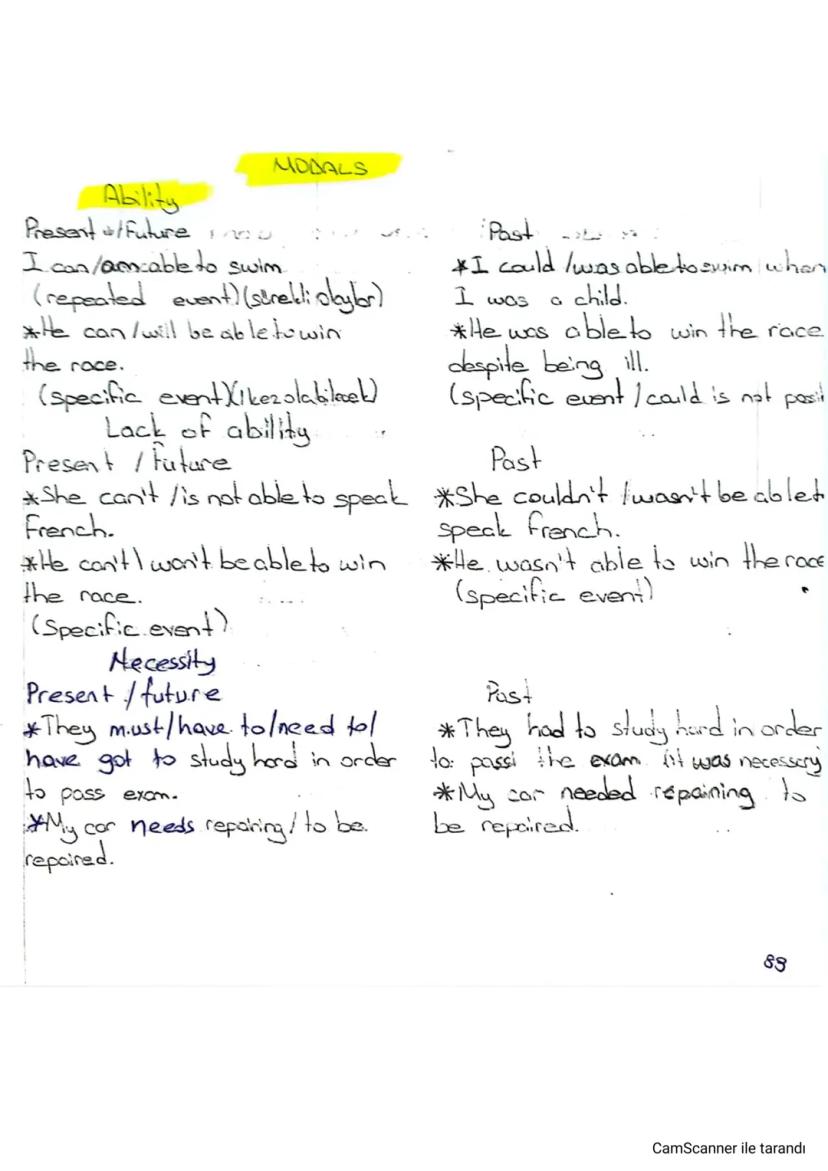 MODALS
Ability
Present /Future
I can/am able to swim
(repeated event)(sürekli olaylar)
*He can/will be able to win
the race.
(specific event)(1 kez olabilecek)
Past
*I could /was able to swim when
I was a child.
*He was able to win the race
despite being ill.
(specific event / could is not posit
Lack of ability
Present / Future
*She can't /is not able to speak
French.
*He can't\ won't be able to win
the race.
(Specific event)
Past
*She couldn't /wasn't be able t
speak French.
*He wasn't able to win the race
(specific event)
Necessity
Present / future
*They must/have to/need to/
have got to study hard in order
to pass exam.
*My car needs repairing/ to be
repaired.
Past
*They had to study hard in order
to pass the exam it was necessary
*My car needed repaining to
be repaired.
89
CamScanner ile tarandı